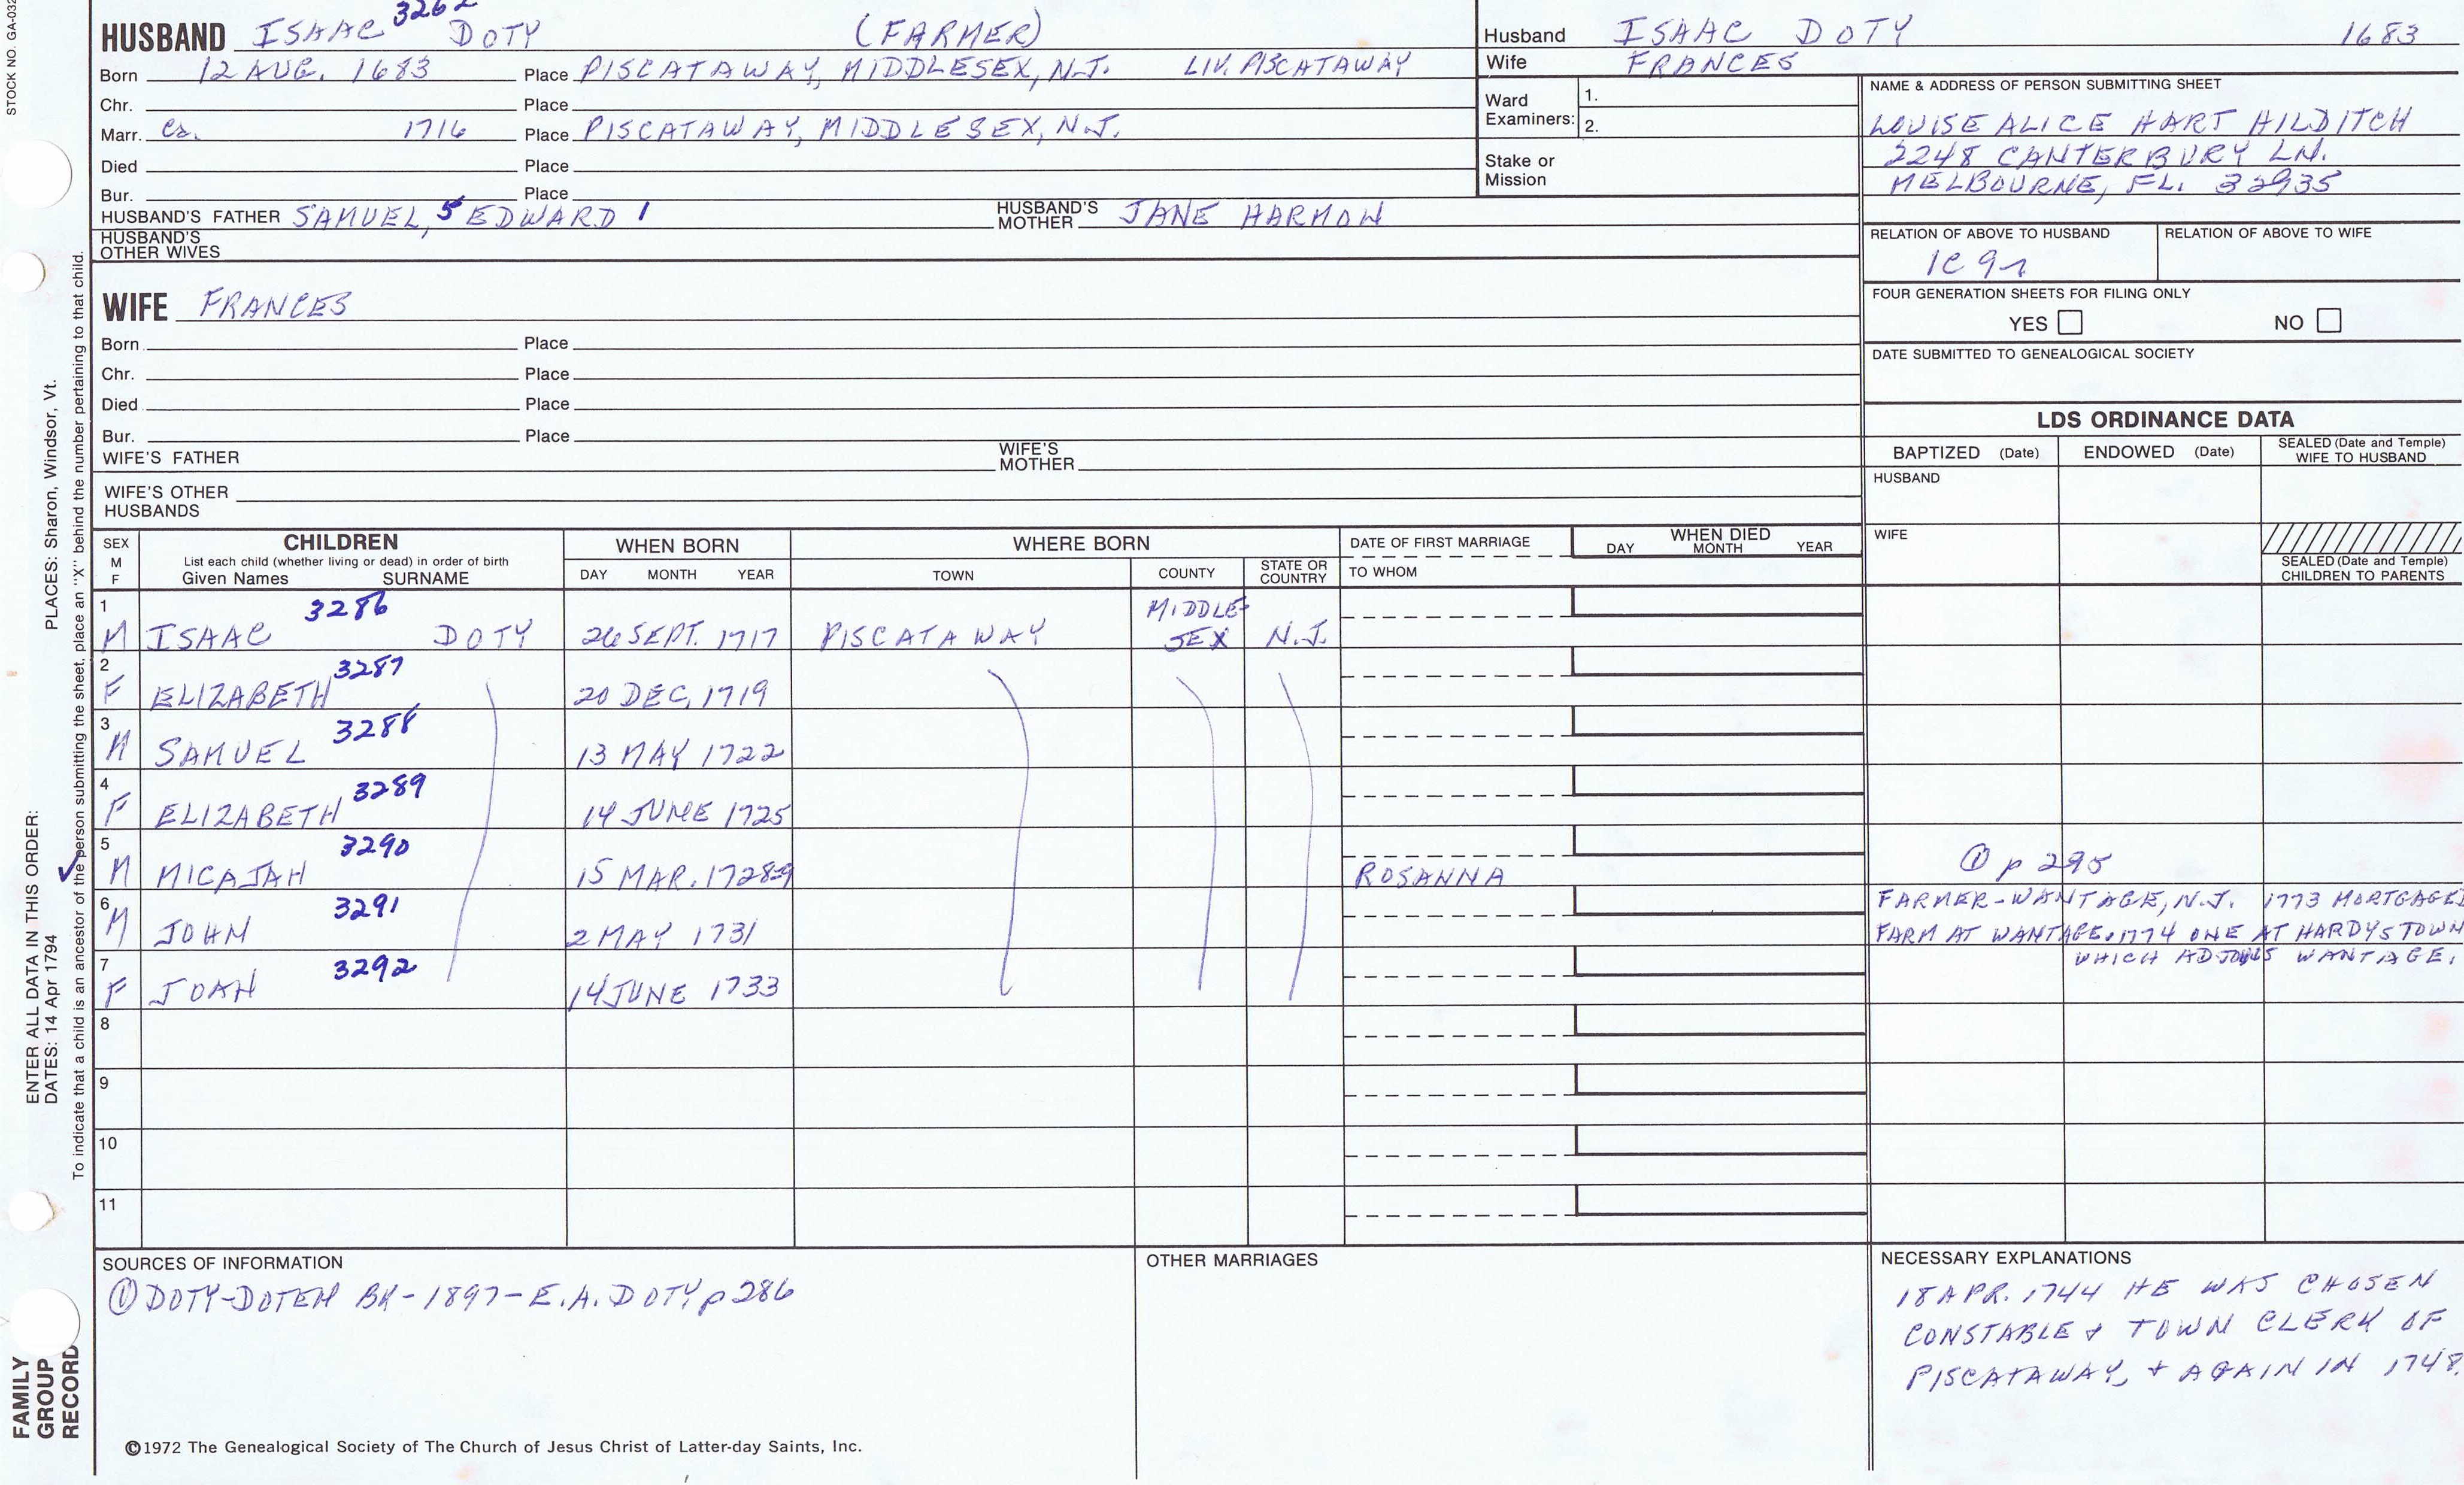 STOCK NO. GA-032
HUSBAND ISAAC 3262 DOTY (FARMER)
Born 12 AUG. 1683 Place PISCATAWAY, MIDDLESEX, N.J. LIV. PISCATAWAY
Chr. Place
Marr. ca. 1716 Place PISCATAWAY, MIDDLESEX, N.J.
Died Place
Bur. Place
HUSBAND'S FATHER SAMUEL,5 EDWARD 1 HUSBAND'S MOTHER JANE HARMON
HUSBAND'S OTHER WIVES
Husband ISAAC DOTY 1683
Wife FRANCES
Ward Examiners: 1.
2.
Stake or Mission
NAME & ADDRESS OF PERSON SUBMITTING SHEET
LOUISE ALICE HART HILDITCH
2248 CANTERBURY LN.
MELBOURNE, FL. 32935
RELATION OF ABOVE TO HUSBAND RELATION OF ABOVE TO WIFE
1C 9r
FOUR GENERATION SHEETS FOR FILING ONLY
YES NO
DATE SUBMITTED TO GENEALOGICAL SOCIETY
WIFE FRANCES
Born Place
Chr. Place
Died Place
Bur. Place
WIFE'S FATHER WIFE'S MOTHER
WIFE'S OTHER HUSBANDS
LDS ORDINANCE DATA
BAPTIZED (Date) ENDOWED (Date) SEALED (Date and Temple) WIFE TO HUSBAND
HUSBAND
WIFE
SEALED (Date and Temple) CHILDREN TO PARENTS
SEX M F
CHILDREN
List each child (whether living or dead) in order of birth
Given Names SURNAME
WHEN BORN
DAY MONTH YEAR
WHERE BORN
TOWN COUNTY STATE OR COUNTRY
DATE OF FIRST MARRIAGE
TO WHOM
WHEN DIED
DAY MONTH YEAR
1 M ISAAC 3286 DOTY 26 SEPT. 1717 PISCATAWAY MIDDLE-SEX N.J.
2 F ELIZABETH 3287 20 DEC, 1719
3 M SAMUEL 3288 13 MAY 1722
4 F ELIZABETH 3289 14 JUNE 1725
5 M MICAJAH 3290 15 MAR. 1728-9 ROSANNA ① p 295
6 M JOHN 3291 2 MAY 1731
7 F JOAH 3292 14 JUNE 1733
FARMER-WANTAGE, N.J. 1773 MORTGAGED
FARM AT WANTAGE. 1774 ONE AT HARDYSTOWN
WHICH ADJOINS WANTAGE.
8
9
10
11
SOURCES OF INFORMATION
① DOTY-DOTEN BK-1897-E.A. DOTY, p 286
OTHER MARRIAGES
NECESSARY EXPLANATIONS
18 APR. 1744 HE WAS CHOSEN
CONSTABLE & TOWN CLERK OF
PISCATAWAY, & AGAIN IN 1748.
©1972 The Genealogical Society of The Church of Jesus Christ of Latter-day Saints, Inc.
FAMILY
GROUP
RECORD
ENTER ALL DATA IN THIS ORDER:
DATES: 14 Apr 1794 PLACES: Sharon, Windsor, Vt.
To indicate that a child is an ancestor of the person submitting the sheet, place an "X" behind the number pertaining to that child.